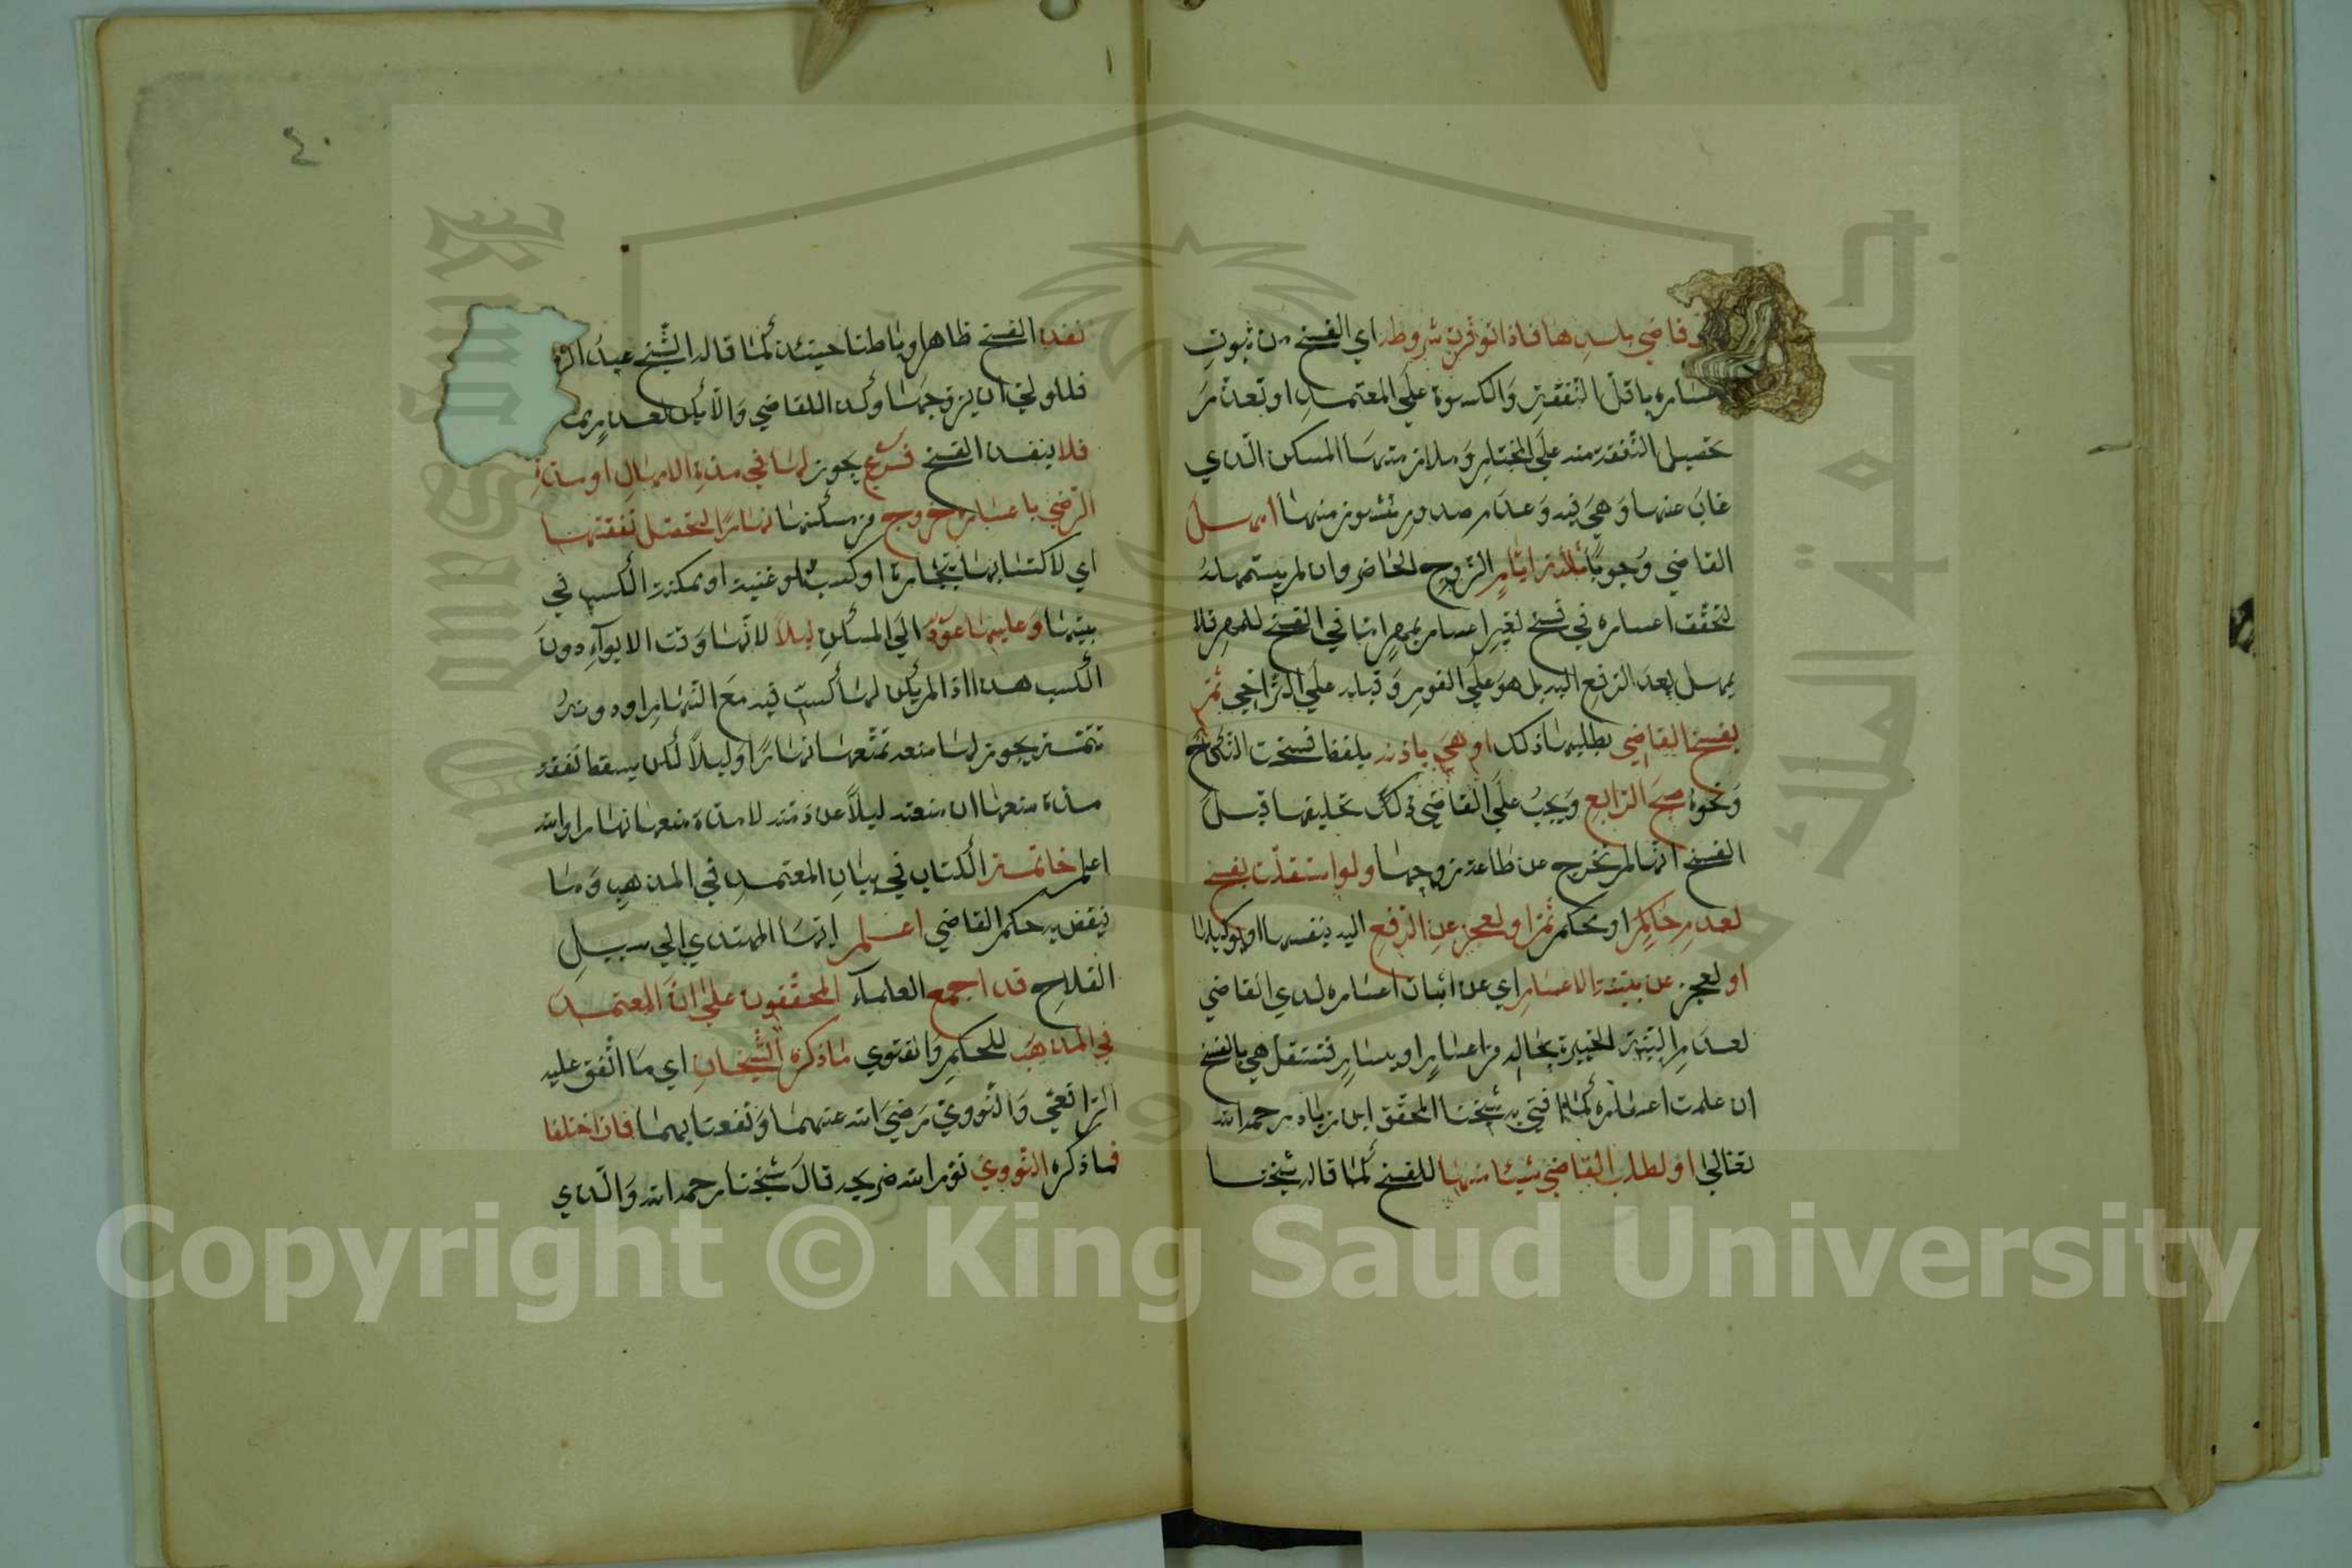 قاضي بلدها فاذا توفرت شروطه اي الفسخ من ثبوت
اعساره باقل النفقة والكسوة على المعتمد او تعذر
تحصيل النفقة منه على المختار وملازمتها المسكن الذي
غاب عنها وهي فيه وعدم صدور نشوز منها امهل
القاضي وجوبا ثلاثة ايام الزوج الحاضر وان لم يستمهله
لتحقق اعساره في فسخ لغير اعسار بمهر اما في الفسخ للمهر فلا
يمهل بعد الرفع اليه بل هو على الفور وقيل على التراخي ثم
يفسخ القاضي بطلبها ذلك او هي باذنه بلفظ فسخت النكاح
ونحوه صبح الرابع ويجب على القاضي ذلك تحليفها قبل
الفسخ انها لم تخرج عن طاعة زوجها ولو استقلت بفسخ
لعدم حاكم او محكم ثم او لعجز عن الرفع اليه بنفسها او بوكيلها
او لعجز عن بينة الاعسار اي عن اثبات اعساره لدي القاضي
لعدم البينة الخبيرة بحاله من اعسار او يسار فتستقل هي بالفسخ
ان علمت اعساره كما افتي به شيخنا المحقق ابن زياد رحمه الله
تعالي او لطلب القاضي شيئا منها للفسخ كما قاله شيخنا
٤٠
نفذ الفسخ ظاهرا وباطنا حينئذ كما قاله الشيخ عبد
فللولي ان يزوجها وكذا للقاضي والا يكن لعدم
فلا ينفذ الفسخ فرع يجوز لها في مدة الامهال او مدة
الرضي باعساره خروج من مسكنها نهارا لتحصل نفقتها
اي لاكتسابها بتجارة او كسب ولو غنية او ممكنة الكسب في
بيتها وعليها عود الي المسكن ليلا لانها وقت الايواء دون
الكسب هذا اذا لم يكن لها كسب فيه مع النهار او دونه
تتمة يجوز لها منعه تمتعها نهارا وليلا لكن يسقط نفقة
مدة منعها ان منعته ليلا عن ذمته لا مدة منعها نهارا والله
اعلم خاتمة الكتاب في بيان المعتمد في المذهب وما
ينقض به حكم القاضي اعلم ايها المهتدي الي سبيل
الفلاح قد اجمع العلماء المحققون علي ان المعتمد
في المذهب للحكم والفتوي ما ذكره الشيخان اي ما اتفق عليه
الرافعي والنووي رضي الله عنهما ونفعنا بهما فان اختلفا
فما ذكره النووي نور الله ضريحه قال شيخنا رحمه الله والذي
Copyright © King Saud University